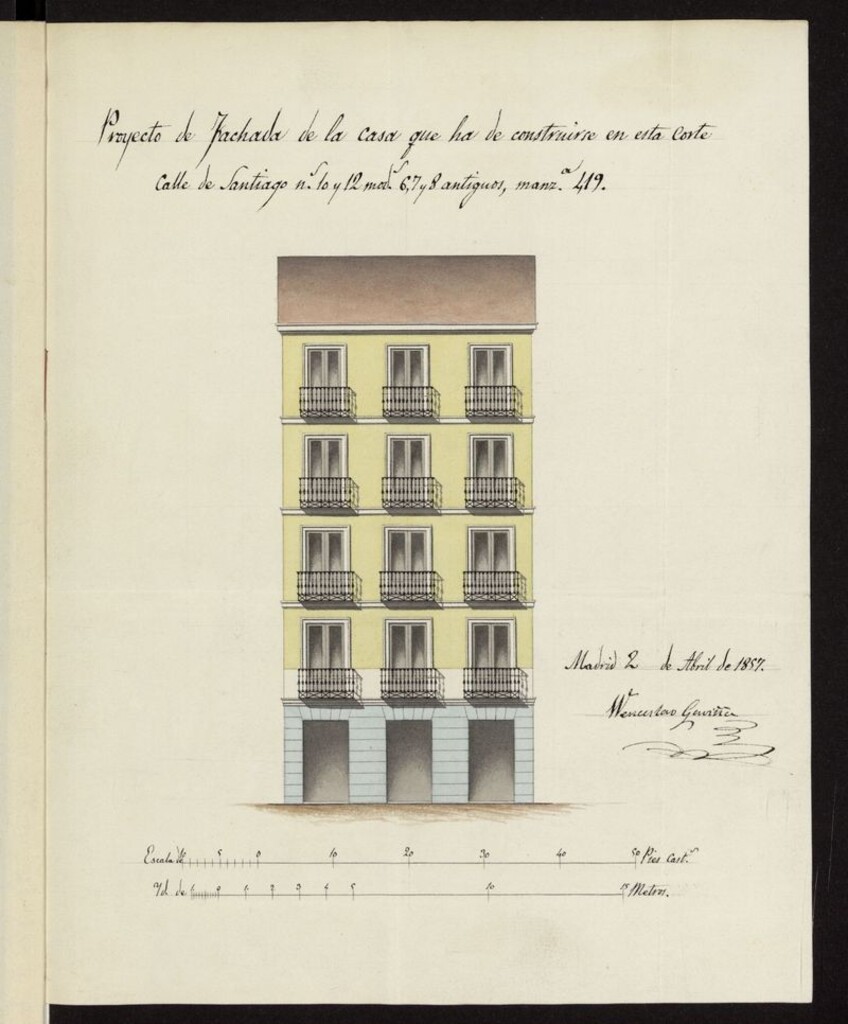 Proyecto de Fachada de la casa que ha de construirse en esta Corte
Calle de Santiago n.s 10 y 12 mod.s 6, 7 y 8 antiguos, manz.a 419.
Madrid 2 de Abril de 1857.
Wenceslao Gaviña
Escala de 10 5 0 10 20 30 40 50 Pies Cast.s
Yd. de 1 0 1 2 3 4 5 10 15 Metros.